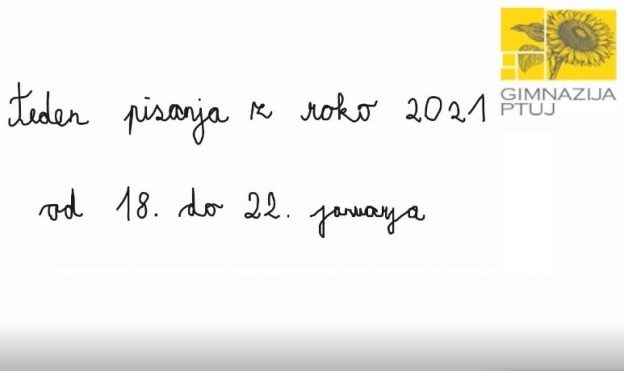 Teden pisanja z roko 2021
od 18. do 22. januarja
GIMNAZIJA
PTUJ